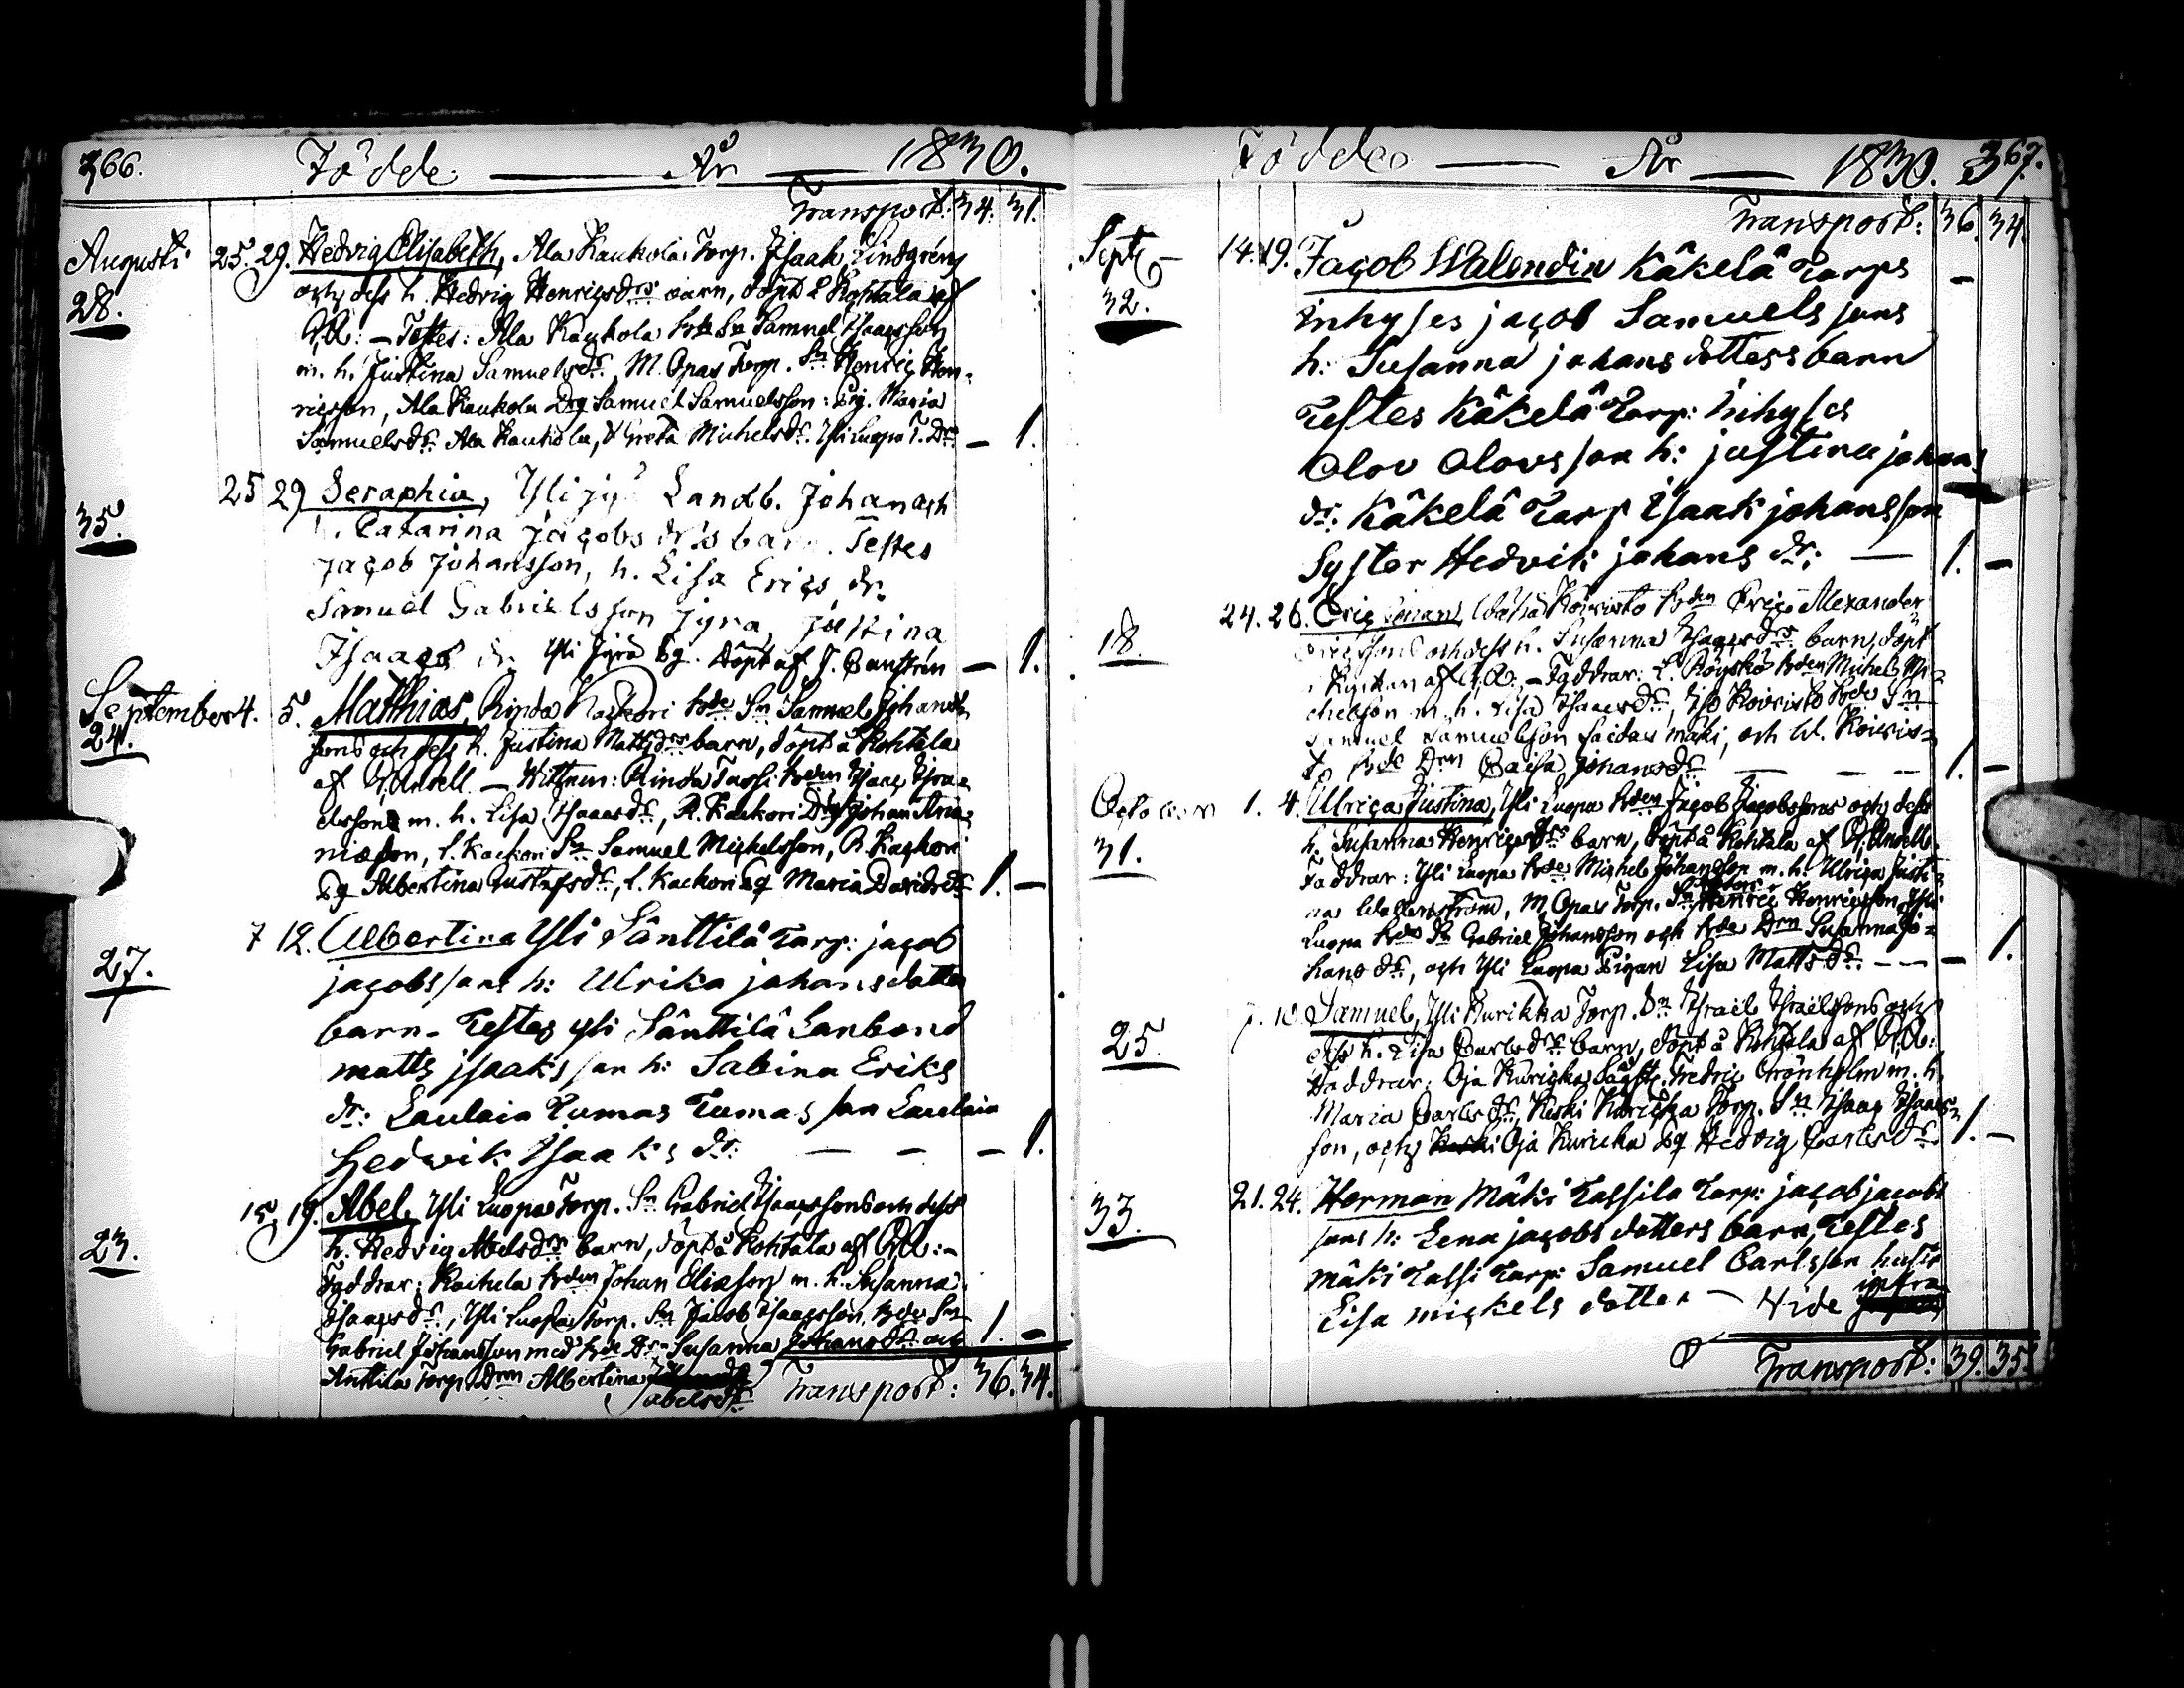 366. Födde År 1830.
Transport: 34. 31.
Augusti 25. 29. Hedvig Elisabeth, Ala Kaukola Torp. Isaak Lindgréns
28. och dess h. Hedvig Henricsdrs barn, döpt Kohtala af
A: – Testes: Ala Kaukola Samuel Isaacsson
m. h. Justina Samuelsdr. M. Opas Torp. Sn Henric Hen-
ricsson, Ala Kaukola Drg Samuel Samuelsson: Pig. Maria
Samuelsdr. Ala Kaukola, Greta Michelsdr. Yli Luopa T. Dr. – 1.
25 29 Seraphia, Yli Jyrä Landb. Johan och
35. h. Catarina Jacobs drs barn. Testes
Jacob Johansson, h. Lisa Erics dr.
Samuel Gabrielsson Jyra, Justina
Isaacs dr Yli Jyrä Pg. Döpt af – 1.
September 4. 5. Matthias, Rinda Kackori Sn Samuel Johans-
24. sons och dess h. Justina Mattsdrs barn, döpt å Kohtala
af – Wittnen: Rinda Tassi Isaac Isra-
elsson m. h. Lisa Isaacsdr, R. Kackori Drg Johan
son, L. Kackori Sn Samuel Michelsson, R. Kackori
Pg Albertina Gustafsdr, L. Kackori Pg Maria Davidsdr 1. –
7 12. Albertina Yli Sänttilä Tarp: jacob
27. jacobs sons h: Ulrika johans dotter
barn – Testes yli Sänttilä Lanbond
matts jsaaks son h: Sabina Eriks
dr: Laulaia Tumas Tumas son Laulaia
Hedwik Isaaks dr: – – – 1.
15. 19. Abel, Yli Luopa Torp. Sn Gabriel Isaacssons och dess
23. h. Hedvig Abelsdrs barn, döpt å Kohtala af
Faddrar: Rachula Johan Eliasson m. h. Susanna
Isaacsdr, Yli Luopa Torp. Sn Jacob Isaacsson,
Gabriel Johansson med Drn Susanna Johansdr. och 1. –
Anttila Torp. Drn Albertina
abelsdr. Transport: 36. 34.
Födde År 1830. 367.
Transport: 36. 34.
Sept. 14. 19. Jacob Walendin Käkelä Tarps –
32. inhyses jacob Samuels sons
h: Susanna johans dotters barn
Testes Käkelä Tarp: inhyses
Olov Olovs son h: justina johans
dr: Käkelä Tarp Isaak johans son
Syster Hedvik johans dr: – 1. –
24. 26. Eric Johan, Koivisto Eric Alexander
18. Ericsons och dess h. Susanna Isaacsdrs barn, döpt
i Kyrkan af – Faddrar: L. Röyskö Michel Mi-
chelsson m. h. Lisa Isaacsdr, Iso Koivisto Sn
Samuel Samuelsson Saidas mäki, och W. Koivis-
to Drn Caisa Johansdr – – – 1. –
October 1. 4. Ulrica Justina, Yli Luopa Jacob Jacobssons och dess
31. h. Susanna Henricsdrs barn, döpt å Kohtala af
Faddrar: Yli Luopa Michel Johansson m. h. Ulrica Justi-
na Wallenström, M. Opas Torp. Sn Henric Henricsson, Yli
Luopa Sn Gabriel Johansson och Drn Susanna Jo-
hans dr, och Yli Luopa Pigan Lisa Matts dr. – – – 1.
7. 10. Samuel, Yli Kurikka Torp. Sn Israël Israëlssons och
25. dess h. Lisa Carlsdrs barn, döpt å Kohtala af
Faddrar: Oja Kuricka Fredric Grönholm m. h.
Maria Carlsdr, Keski Kuricka Torp. Sn Isaac Isaacs-
son, och Oja Kuricka Pg Hedvig Carlsdr. 1. –
21. 24. Herman Mäki Tassila Tarp: jacob jacobs
33. sons h: Lena jacobs dotters barn, Testes
mäki Tassi Tarp: Samuel Carlsson hustr
Lisa mickels dotter – Vide infra
Transport: 39. 35.